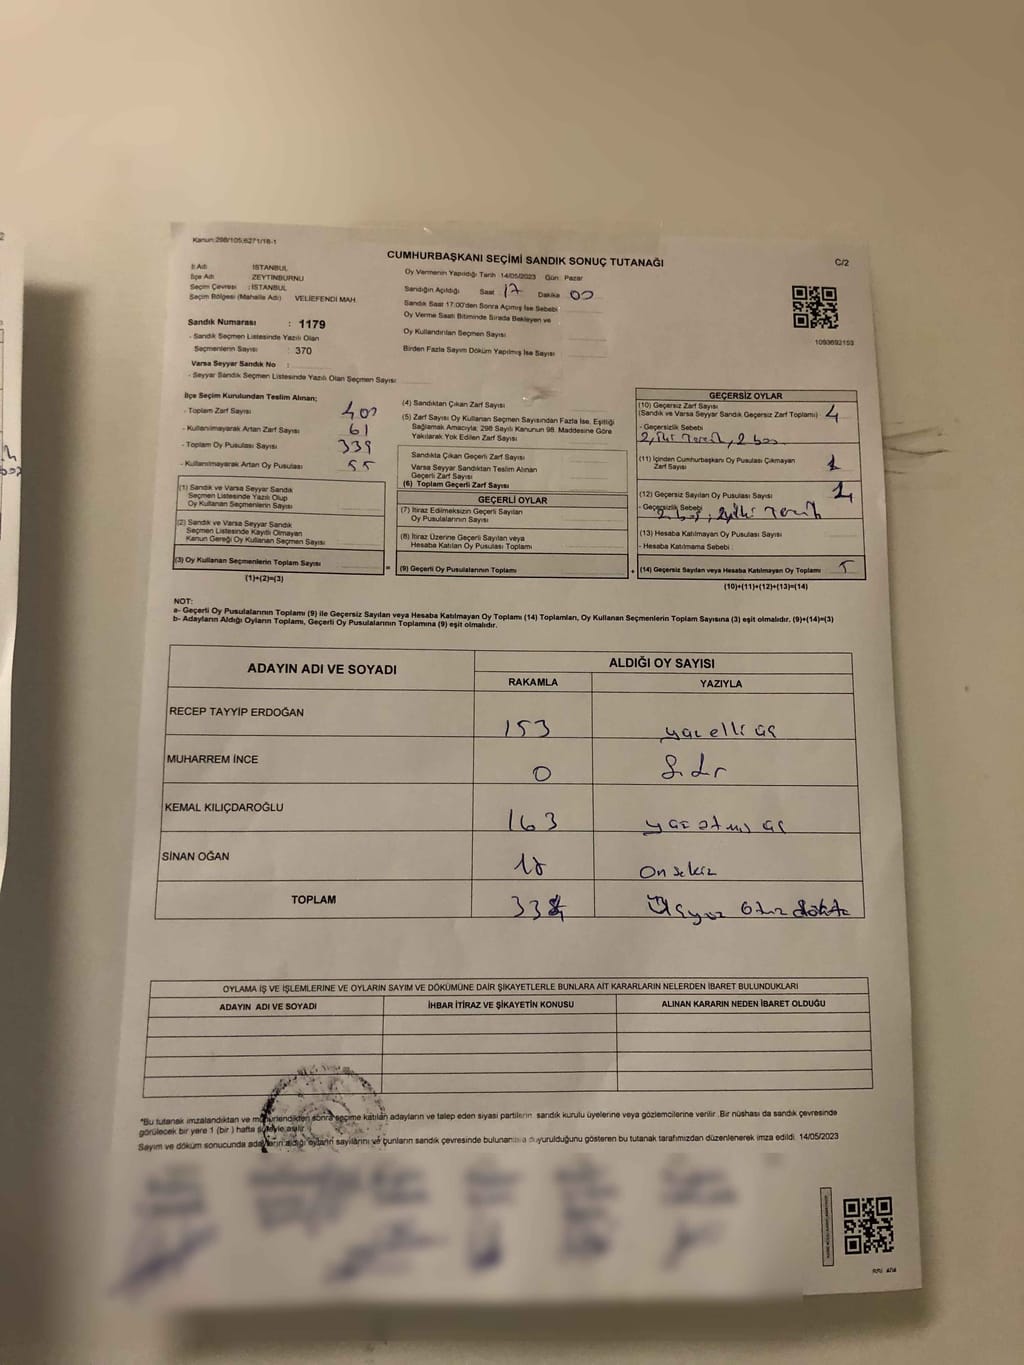 Kanun:298/105;6271/18-1
CUMHURBAŞKANI SEÇİMİ SANDIK SONUÇ TUTANAĞI
C/2
İl Adı İSTANBUL
İlçe Adı ZEYTİNBURNU
Seçim Çevresi : İSTANBUL
Seçim Bölgesi (Mahalle Adı) VELİEFENDİ MAH.
Sandık Numarası : 1179
- Sandık Seçmen Listesinde Yazılı Olan
Seçmenlerin Sayısı : 370
Varsa Seyyar Sandık No :
- Seyyar Sandık Seçmen Listesinde Yazılı Olan Seçmen Sayısı:
Oy Vermenin Yapıldığı Tarih 14/05/2023 Gün: Pazar
Sandığın Açıldığı Saat 17 Dakika 00
Sandık Saat 17:00'den Sonra Açılmış İse Sebebi
Oy Verme Saati Bitiminde Sırada Bekleyen ve
Oy Kullandırılan Seçmen Sayısı
Birden Fazla Sayım Döküm Yapılmış İse Sayısı
1093692153
İlçe Seçim Kurulundan Teslim Alınan;
- Toplam Zarf Sayısı 400
- Kullanılmayarak Artan Zarf Sayısı 61
- Toplam Oy Pusulası Sayısı 339
- Kullanılmayarak Artan Oy Pusulası 55
(1) Sandık ve Varsa Seyyar Sandık
Seçmen Listesinde Yazılı Olup
Oy Kullanan Seçmenlerin Sayısı
(2) Sandık ve Varsa Seyyar Sandık
Seçmen Listesinde Kayıtlı Olmayan
Kanun Gereği Oy Kullanan Seçmen Sayısı
(3) Oy Kullanan Seçmenlerin Toplam Sayısı
(1)+(2)=(3)
(4) Sandıktan Çıkan Zarf Sayısı
(5) Zarf Sayısı Oy Kullanan Seçmen Sayısından Fazla İse, Eşitliği
Sağlamak Amacıyla; 298 Sayılı Kanunun 98. Maddesine Göre
Yakılarak Yok Edilen Zarf Sayısı
Sandıkta Çıkan Geçerli Zarf Sayısı
Varsa Seyyar Sandıktan Teslim Alınan
Geçerli Zarf Sayısı
(6) Toplam Geçerli Zarf Sayısı
GEÇERLİ OYLAR
(7) İtiraz Edilmeksizin Geçerli Sayılan
Oy Pusulalarının Sayısı
(8) İtiraz Üzerine Geçerli Sayılan veya
Hesaba Katılan Oy Pusulası Toplamı
= (9) Geçerli Oy Pusulalarının Toplamı
GEÇERSİZ OYLAR
(10) Geçersiz Zarf Sayısı
(Sandık ve Varsa Seyyar Sandık Geçersiz Zarf Toplamı) 4
- Geçersizlik Sebebi
2 iki Tercih, 2 boş
(11) İçinden Cumhurbaşkanı Oy Pusulası Çıkmayan
Zarf Sayısı 1
(12) Geçersiz Sayılan Oy Pusulası Sayısı
- Geçersizlik Sebebi
2 boş, 2 iki Tercih
(13) Hesaba Katılmayan Oy Pusulası Sayısı
- Hesaba Katılmama Sebebi
+ (14) Geçersiz Sayılan veya Hesaba Katılmayan Oy Toplamı 5
(10)+(11)+(12)+(13)=(14)
NOT:
a- Geçerli Oy Pusulalarının Toplamı (9) ile Geçersiz Sayılan veya Hesaba Katılmayan Oy Toplamı (14) Toplamları, Oy Kullanan Seçmenlerin Toplam Sayısına (3) eşit olmalıdır. (9)+(14)=(3)
b- Adayların Aldığı Oyların Toplamı, Geçerli Oy Pusulalarının Toplamına (9) eşit olmalıdır.
ADAYIN ADI VE SOYADI ALDIĞI OY SAYISI
RAKAMLA YAZIYLA
RECEP TAYYİP ERDOĞAN 153 yüz elli üç
MUHARREM İNCE 0 Sıfır
KEMAL KILIÇDAROĞLU 163 yüz atmış üç
SİNAN OĞAN 18 On sekiz
TOPLAM 334 Üçyüz Otuz dört
OYLAMA İŞ VE İŞLEMLERİNE VE OYLARIN SAYIM VE DÖKÜMÜNE DAİR ŞİKAYETLERLE BUNLARA AİT KARARLARIN NELERDEN İBARET BULUNDUKLARI
ADAYIN ADI VE SOYADI İHBAR İTİRAZ VE ŞİKAYETİN KONUSU ALINAN KARARIN NEDEN İBARET OLDUĞU
*Bu tutanak imzalandıktan ve mühürlendikten sonra seçime katılan adayların ve talep eden siyasi partilerin sandık kurulu üyelerine veya gözlemcilerine verilir. Bir nüshası da sandık çevresinde
görülecek bir yere 1 (bir) hafta süreyle asılır.
Sayım ve döküm sonucunda adayların aldığı oyların sayılarını ve bunların sandık çevresinde bulunanlara duyurulduğunu gösteren bu tutanak tarafımızdan düzenlenerek imza edildi. 14/05/2023